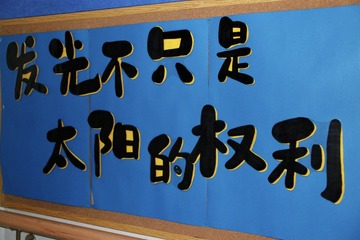 发光不只是
太阳的权利